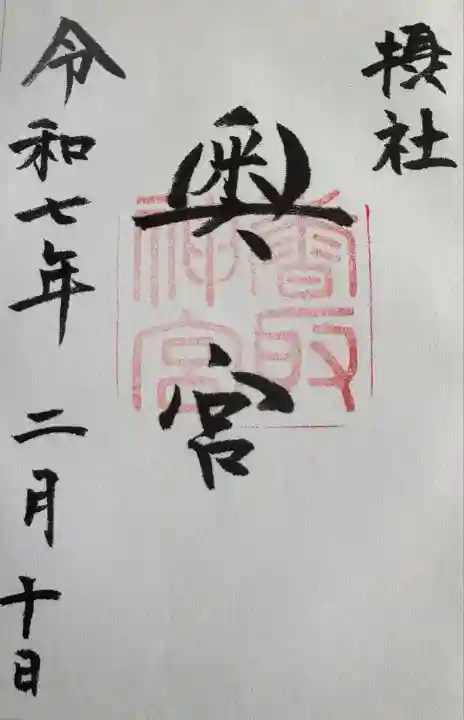 摂社
奥宮
香取
神宮
令和七年 二月 十日